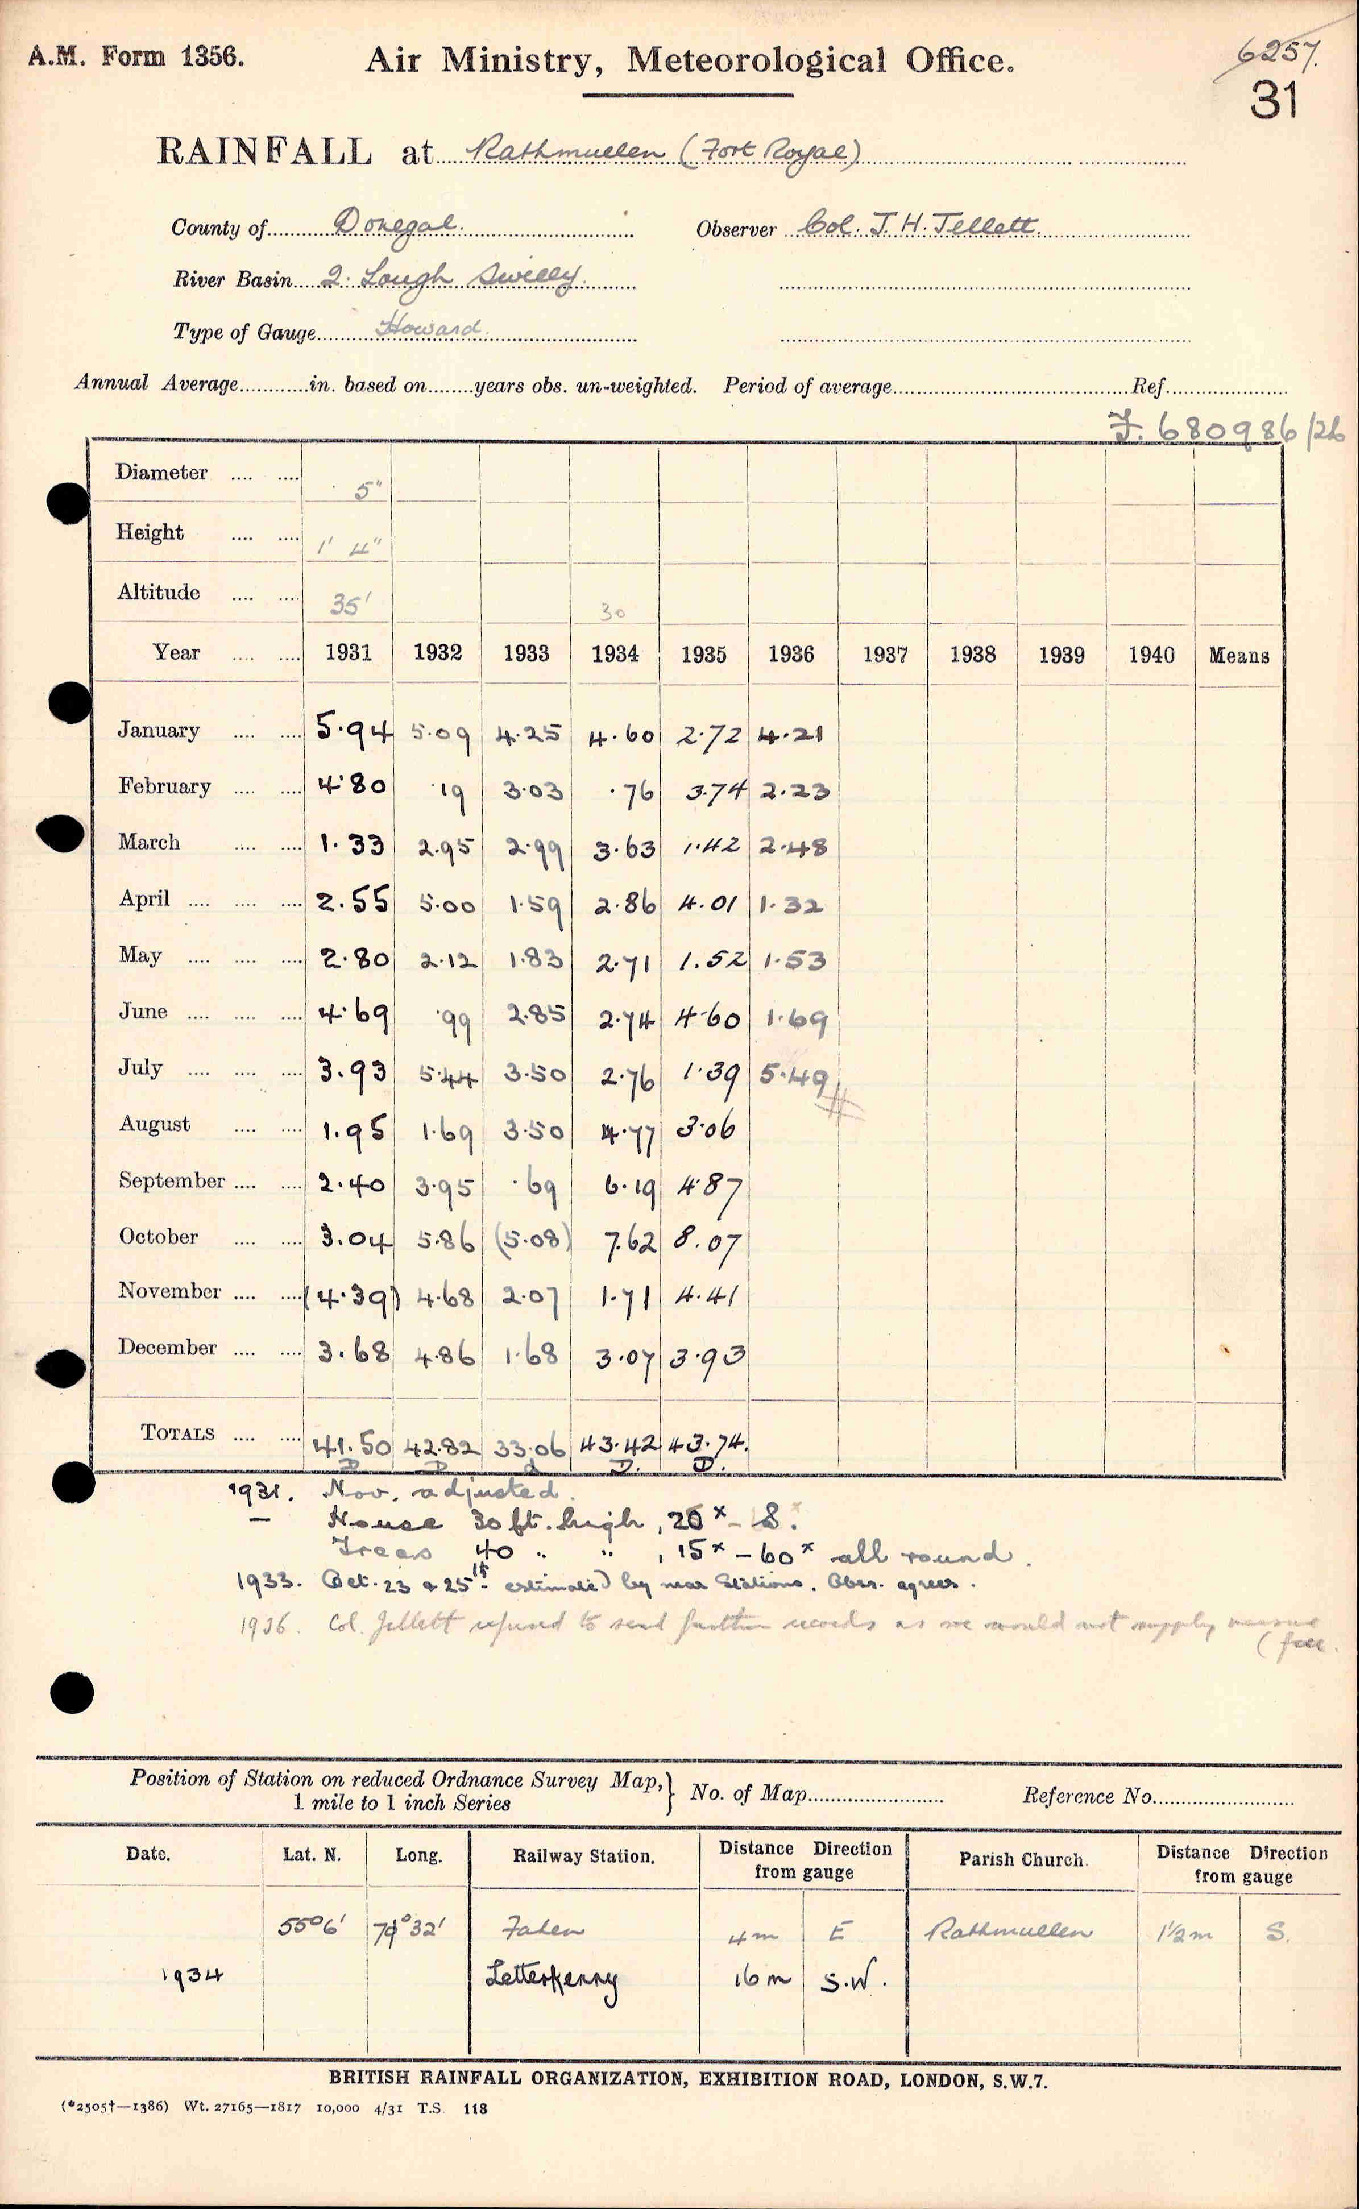 A.M. Form 1356.
Air Ministry, Meteorological Office.
6257.
31
RAINFALL at Rathmullen (Fort Royal)
County of Donegal. Observer Col. J. H. Jellett.
River Basin 2. Lough Swilly.
Type of Gauge Howard.
Annual Average in. based on years obs. un-weighted. Period of average Ref.
I. 680986/26
Diameter 5"
Height 1' 4"
Altitude 35' 30
Year 1931 1932 1933 1934 1935 1936 1937 1938 1939 1940 Means
January 5.94 5.09 4.25 4.60 2.72 4.21
February 4.80 .19 3.03 .76 3.74 2.23
March 1.33 2.95 2.99 3.63 1.42 2.48
April 2.55 5.00 1.59 2.86 4.01 1.32
May 2.80 2.12 1.83 2.71 1.52 1.53
June 4.69 .99 2.85 2.74 4.60 1.69
July 3.93 5.44 3.50 2.76 1.39 5.49
August 1.95 1.69 3.50 4.77 3.06
September 2.40 3.95 .69 6.19 4.87
October 3.04 5.86 (5.08) 7.62 8.07
November (4.39) 4.68 2.07 1.71 4.41
December 3.68 4.86 1.68 3.07 3.93
TOTALS 41.50 42.82 33.06 43.42 43.74.
D D D. D.
1931. Nov. adjusted.
— House 30 ft. high, 20ˣ – S.
Trees 40 " " , 15ˣ – 60ˣ all round.
1933. Oct. 23 & 25th estimated by near Stations. Obsr. agrees.
1936. Col. Jellett refused to send further records as we would not supply
(free.
Position of Station on reduced Ordnance Survey Map, } No. of Map Reference No.
1 mile to 1 inch Series
Date. Lat. N. Long. Railway Station. Distance Direction from gauge Parish Church. Distance Direction from gauge
55°6' 7°32' Fahen 4m E Rathmullen 1½m S.
1934 Letterkenny 16m S.W.
BRITISH RAINFALL ORGANIZATION, EXHIBITION ROAD, LONDON, S.W.7.
(*2505†—1386) Wt. 27165—1817 10,000 4/31 T.S. 118